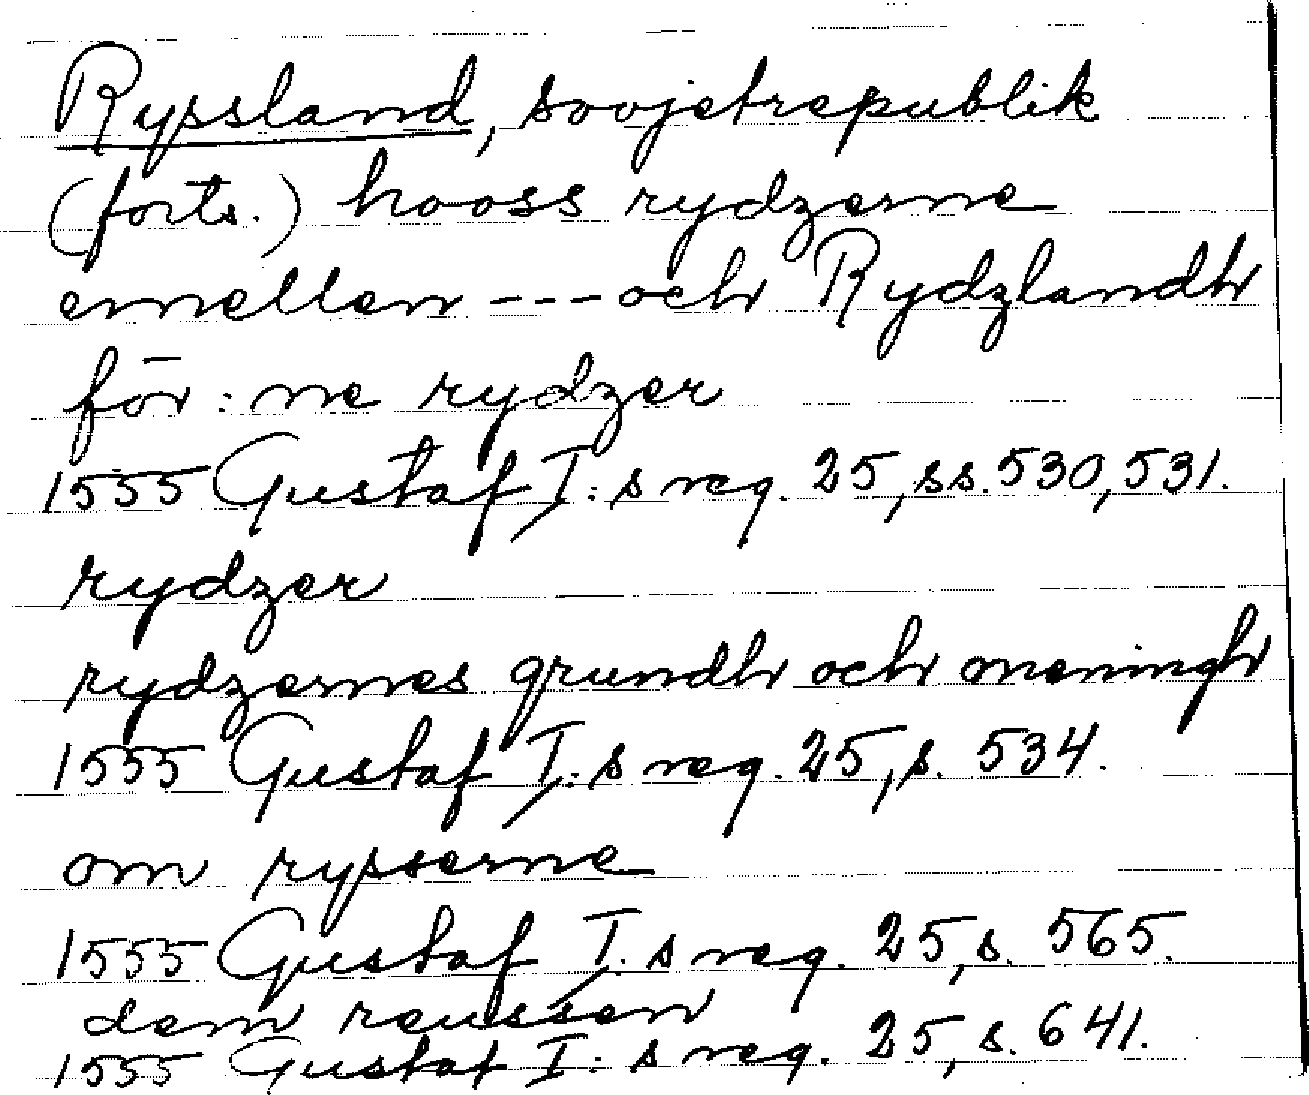 Ryssland, sovjetrepublik
(forts.) hooss rydzerne
emellen --- och Rydzlandh
för: ne rydzer
1555 Gustaf I: s reg. 25, ss. 530, 531.
rydzer
rydzernes grundh och meningh
1555 Gustaf I: s reg. 25, s. 534.
om rysserne
1555 Gustaf I: s reg. 25, s. 565.
dem reussen
1555 Gustaf I: s reg. 25, s. 641.